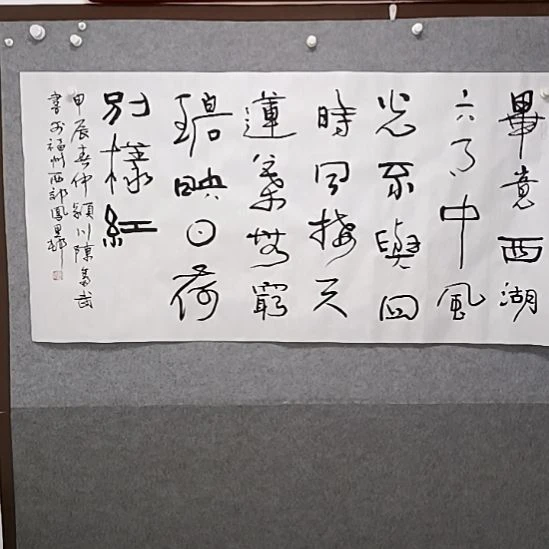 畢竟西湖
六月中風
光不與四
時同接天
蓮葉無窮
碧映日荷
別樣紅
甲辰春仲潁川陳武
書於福州西郊鳳里邨